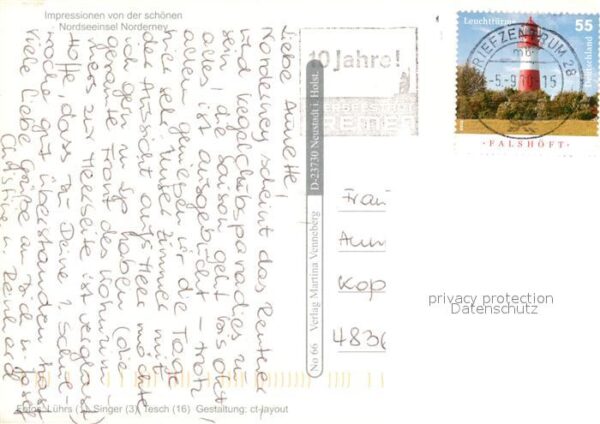 Impressionen von der schönen
Nordseeinsel Norderney
Liebe Annette,
Norderney scheint das Rentner-
und Kegelclubparadies zu
sein! die Saison geht los
alles ist ausgebucht - trotz
allem genießen wir die Tage,
Zimmer mit
der Aussicht aufs Meer möchte
ich gern haben (die
gesamte Front des Wohnzim-
mers zur Meerseite ist verglast)
Hoffe, dass Du Deine Schul-
noch gut überstanden hast
Viele liebe Grüße an Dich u. Josef
Christine u. Reinhard
Fotos: Lührs (1), Singer (3), Tesch (16) Gestaltung: ct-layout
No 66 Verlag Martina Venneberg D-23730 Neustadt i. Holst.
10 Jahre!
BRIEFZENTRUM 28
mb
-5.-9.10.-15
Leuchttürme
55
Deutschland
FALSHÖFT
Frau
Kop
4836
privacy protection
Datenschutz